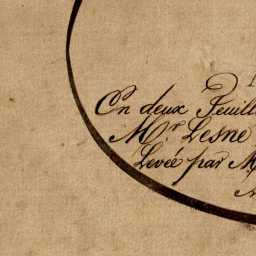 En deux Feuill
Mr. Lesne
Levée par M